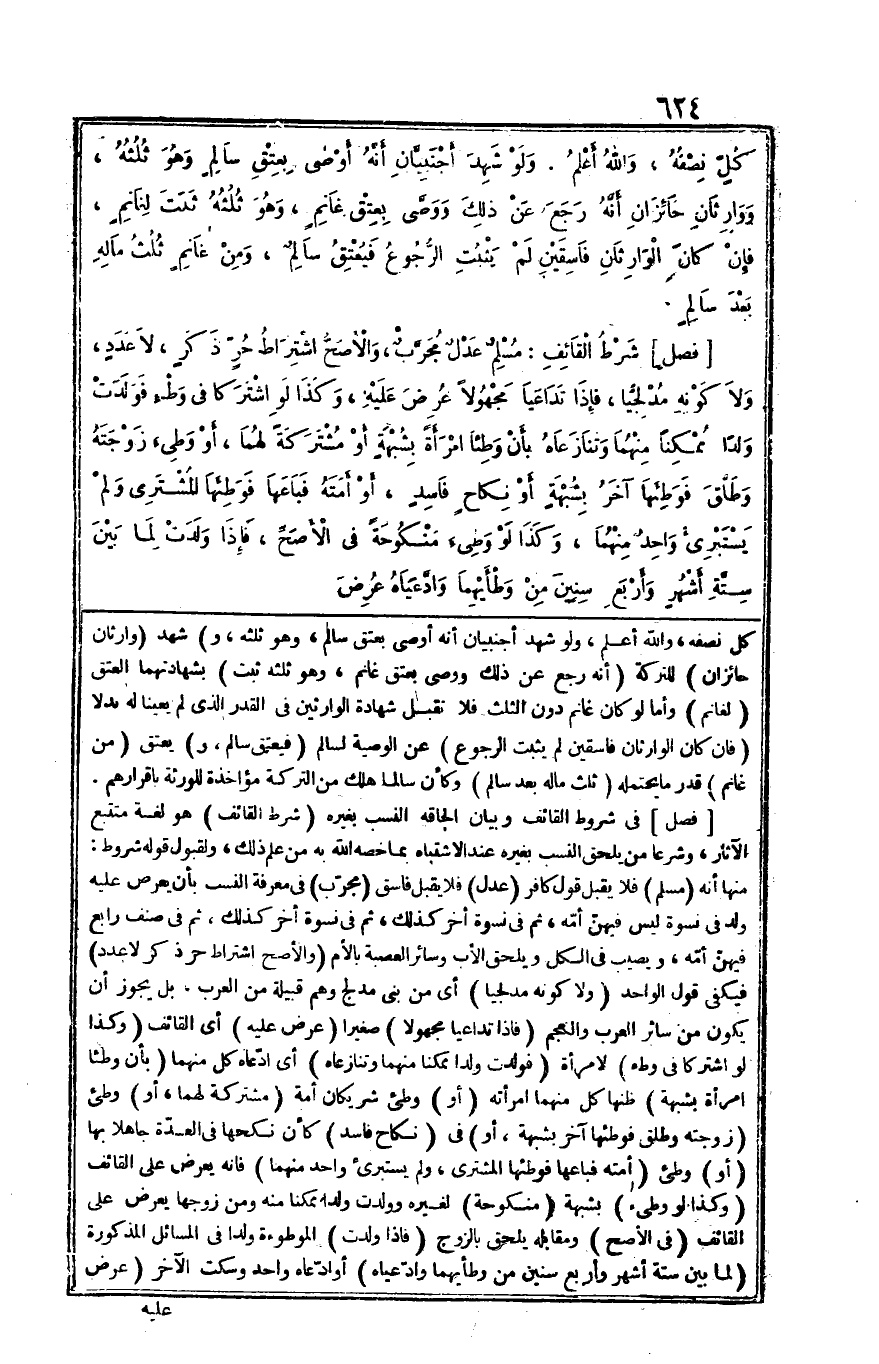 ٦٢٤
كُلٍّ نِصْفُهُ ، وَاللهُ أَعْلَمُ . وَلَوْ شَهِدَ أَجْنَبِيَّانِ أَنَّهُ أَوْصَى بِعِتْقِ سَالِمٍ وَهُوَ ثُلُثُهُ ،
وَوَارِثَانِ حَائِزَانِ أَنَّهُ رَجَعَ عَنْ ذٰلِكَ وَوَصَّى بِعِتْقِ غَانِمٍ ، وَهُوَ ثُلُثُهُ ثَبَتَ لِغَانِمٍ ،
فَإِنْ كَانَ الْوَارِثَانِ فَاسِقَيْنِ لَمْ يَثْبُتِ الرُّجُوعُ فَيُعْتِقُ سَالِمٌ ، وَمِنْ غَانِمٍ ثُلُثُ مَالِهِ
بَعْدَ سَالِمٍ .
[ فصل ] شَرْطُ الْقَائِفِ : مُسْلِمٌ عَدْلٌ مُجَرَّبٌ ، وَالْأَصَحُّ اشْتِرَاطُ حُرٍّ ذَكَرٍ ، لَا عَدَدٍ ،
وَلَا كَوْنِهِ مُدْلِجِيًّا ، فَإِذَا تَدَاعَيَا مَجْهُولًا عُرِضَ عَلَيْهِ ، وَكَذَا لَوِ اشْتَرَكَا فِى وَطْءٍ فَوَلَدَتْ
وَلَدًا مُمْكِنًا مِنْهُمَا وَتَنَازَعَاهُ بِأَنْ وَطِئَا امْرَأَةً بِشُبْهَةٍ أَوْ مُشْتَرَكَةً لَهُمَا ، أَوْ وَطِىءَ زَوْجَتَهُ
وَطَلَّقَ فَوَطِئَهَا آخَرُ بِشُبْهَةٍ أَوْ نِكَاحٍ فَاسِدٍ ، أَوْ أَمَتَهُ فَبَاعَهَا فَوَطِئَهَا الْمُشْتَرِى وَلَمْ
يَسْتَبْرِئْ وَاحِدٌ مِنْهُمَا ، وَكَذَا لَوْ وَطِىءَ مَنْكُوحَةً فِى الْأَصَحِّ ، فَإِذَا وَلَدَتْ لِمَا بَيْنَ
سِتَّةِ أَشْهُرٍ وَأَرْبَعِ سِنِينَ مِنْ وَطْأَيْهِمَا وَادَّعَيَاهُ عُرِضَ
كل نصفه ، والله أعلم ، ولو شهد أجنبيان أنه أوصى بعتق سالم ، وهو ثلثه ، و) شهد (وارثان
حائزان ) للتركة ( أنه رجع عن ذلك ووصى بعتق غانم ، وهو ثلثه ثبت ) بشهادتهما العتق
( لغانم ) وأما لو كان غانم دون الثلث فلا تقبل شهادة الوارثين فى القدر الذى لم يعينا له بدلا
( فان كان الوارثان فاسقين لم يثبت الرجوع ) عن الوصية لسالم ( فيعتق سالم ، و) يعتق ( من
غانم ) قدر مايحتمله ( ثلث ماله بعد سالم ) وكأن سالما هلك من التركة مؤاخذة للورثة باقرارهم .
[ فصل ] فى شروط القائف وبيان الحاقه النسب بغيره ( شرط القائف ) هو لغة متتبع
الآثار ، وشرعا من يلحق النسب بغيره عند الاشتباه بماخصه الله به من علم ذلك ، ولقبول قوله شروط :
منها أنه (مسلم) فلا يقبل قول كافر (عدل) فلا يقبل فاسق (مجرّب) فى معرفة النسب بأن يعرض عليه
ولد فى نسوة ليس فيهنّ أمّه ، ثم فى نسوة أخر كذلك ، ثم فى نسوة أخر كذلك ، ثم فى صنف رابع
فيهنّ أمّه ، ويصيب فى الكل ويلحق الأب وسائر العصبة بالأم (والأصح اشتراط حر ذكر لاعدد)
فيكفى قول الواحد ( ولا كونه مدلجيا ) أى من بنى مدلج وهم قبيلة من العرب . بل يجوز أن
يكون من سائر العرب والعجم ( فاذا تداعيا مجهولا ) صغيرا ( عرض عليه ) أى القائف ( وكذا
لو اشتركا فى وطء ) لامرأة ( فولدت ولدا ممكنا منهما وتنازعاه ) أى ادّعاه كل منهما ( بأن وطئا
امرأة بشبهة ) ظنها كل منهما امرأته ( أو ) وطئ شريكان أمة ( مشتركة لهما ، أو ) وطئ
( زوجته وطلق فوطئها آخر بشبهة ، أو ) فى ( نكاح فاسد ) كأن نكحها فى العدّة جاهلا بها
( أو ) وطئ ( أمته فباعها فوطئها المشترى ، ولم يستبرئ واحد منهما ) فانه يعرض على القائف
( وكذا لو وطىء ) بشبهة ( منكوحة ) لغيره وولدت ولدا ممكنا منه ومن زوجها يعرض على
القائف ( فى الأصح ) ومقابله يلحق بالزوج ( فاذا ولدت ) الموطوءة ولدا فى المسائل المذكورة
( لما بين ستة أشهر وأربع سنين من وطأيهما وادّعياه ) أوادّعاه واحد وسكت الآخر ( عرض
عليه